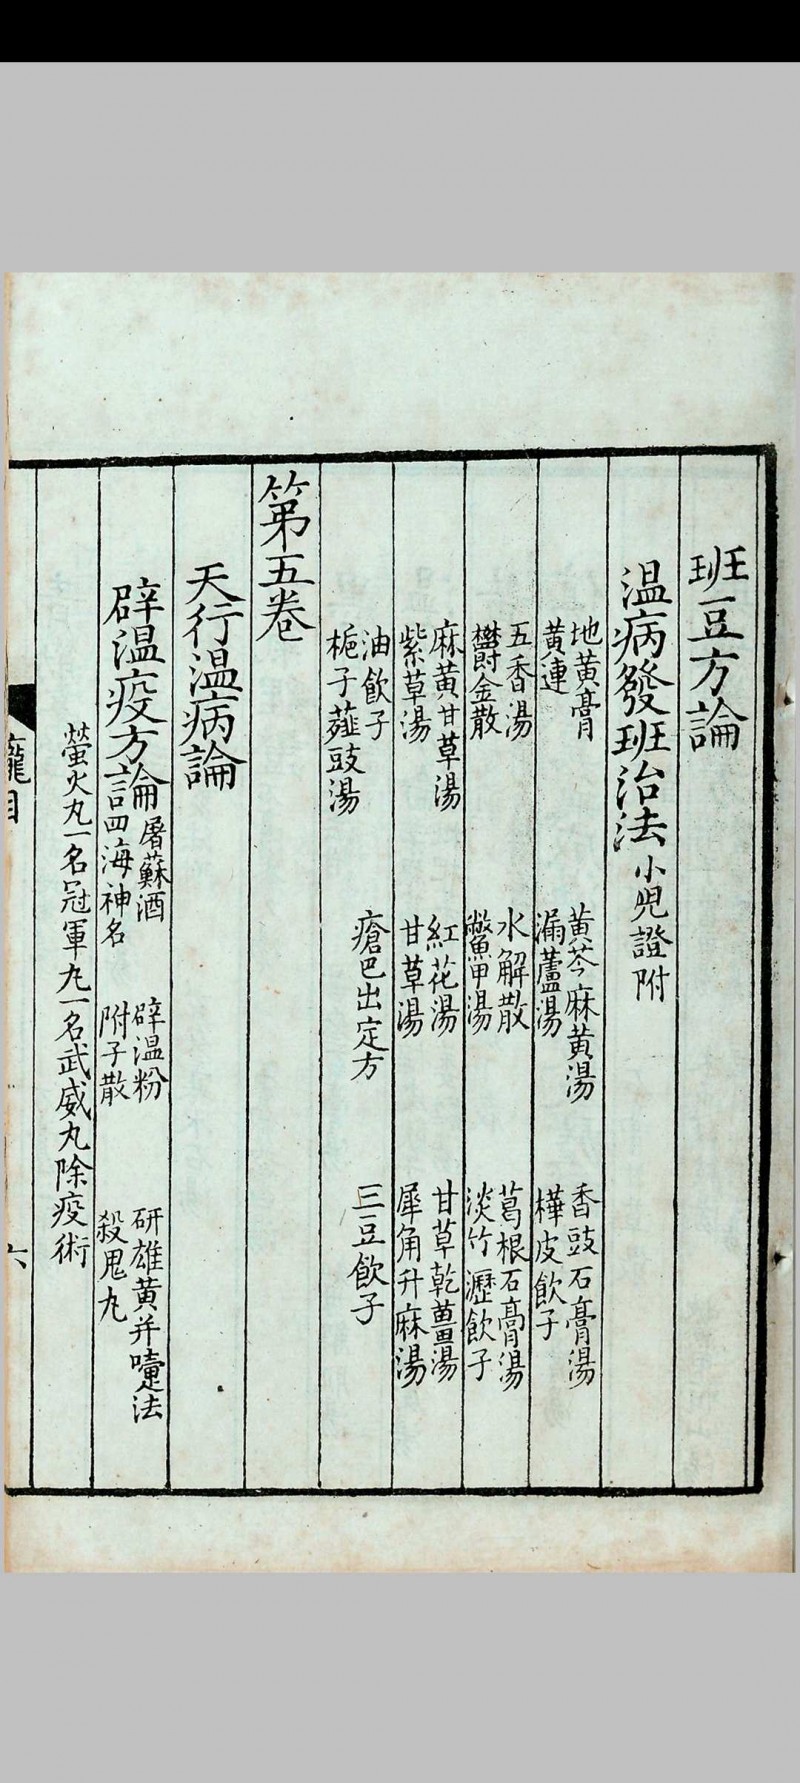 班豆方論
温病發班治法小兒證附
地黄膏 黄芩麻黄湯 香豉石膏湯
黄連 漏蘆湯 樺皮飲子
五香湯 水解散 葛根石膏湯
欝金散 鱉甲湯 淡竹瀝飲子
麻黄甘草湯 紅花湯 甘草乾薑湯
紫草湯 甘草湯 犀角升麻湯
油飲子 瘡巴出定方 三豆飲子
梔子薤豉湯
第五卷
天行温病論
辟温疫方論
屠蘇酒 辟温粉 研雄黄并嚏法
四海神名 附子散 殺鬼丸
螢火丸一名冠軍丸一名武威丸除疫術
龐目
六